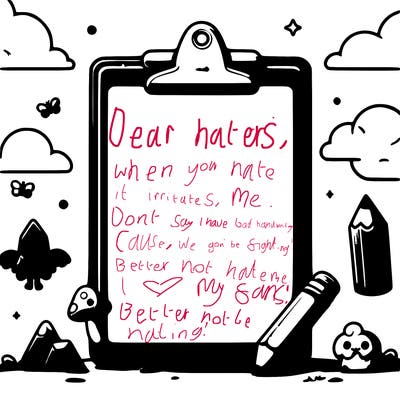 Dear haters,
when you hate
it irritates, me.
Dont say I have bad handwriting
Cause, we gon be fighting
Better not hate me
I ♡ My fans!
Better not be
hating!